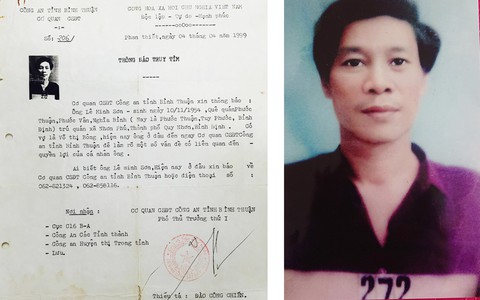 CÔNG AN TỈNH BÌNH THUẬN
CƠ QUAN CSĐT
Số: 206/
CỘNG HÒA XÃ HỘI CHỦ NGHĨA VIỆT NAM
Độc lập - Tự do - Hạnh phúc
Phan thiết, ngày 04 tháng 04 năm 1999
THÔNG BÁO TRUY TÌM
Cơ quan CSĐT Công an tỉnh Bình Thuận xin thông báo :
Ông Lê Minh Sơn - sinh ngày 10/11/1954 ,Quê quán Phước
Thuận,Phước Vân,Nghĩa Bình ( Nay là Phước Thuận,Tuy Phước, Bình
Định) trú quán xã Nhơn Phú,Thành phố Quy Nhơn,Bình Định. Có
vợ là Võ Thị Hồng ,hiện nay ông ở đâu đến ngay Cơ quan CSĐT Công
an tỉnh Bình Thuận để làm rõ một số vấn đề có liên quan đến -
quyền lợi của cá nhân ông .
Ai biết ông Lê Minh Sơn,Hiện nay ở đâu xin báo về
Cơ quan CSĐT Công an tỉnh Bình Thuận hoặc điện thoại số :
062-821324 , 062-858116.
Nơi nhận :
- Cục C16 B-A
- Công An Các Tỉnh thành
- Công an Huyện thị Trong tỉnh
- Lưu.
CƠ QUAN CSĐT CÔNG AN TỈNH BÌNH THUẬN
Phó Thủ Trưởng thứ I
Thiếu tá : BÁO CÔNG CHIẾN.
272